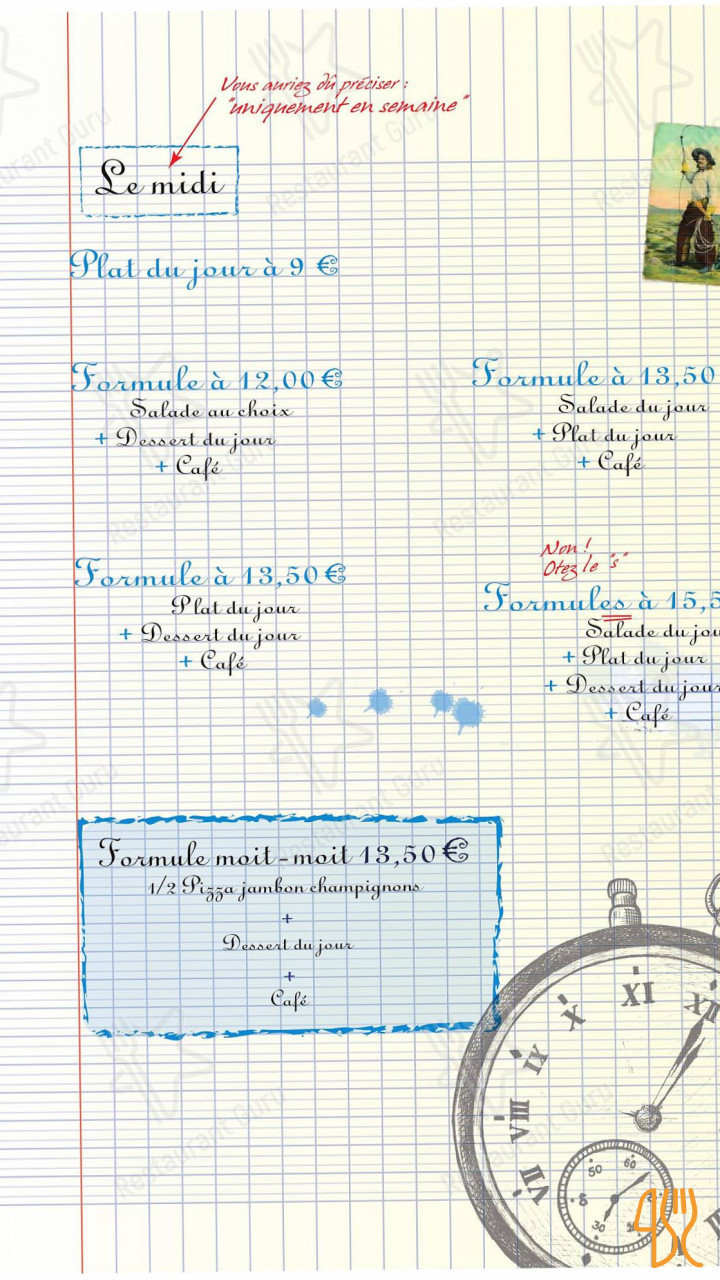 Vous auriez dû préciser :
"uniquement en semaine"
Le midi
Plat du jour à 9 €
Formule à 12,00 €
Salade au choix
+ Dessert du jour
+ Café
Formule à 13,50
Salade du jour
+ Plat du jour
+ Café
Formule à 13,50 €
Plat du jour
+ Dessert du jour
+ Café
Non !
Otez le "s"
Formules à 15,5
Salade du jou
+ Plat du jour
+ Dessert du jour
+ Café
Formule moit-moit 13,50 €
1/2 Pizza jambon champignons
+
Dessert du jour
+
Café
XI
XII
X
IX
VIII
VII
60
50
30
Restaurant Guru